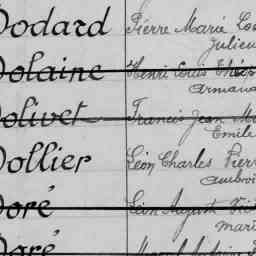 Dodard Pierre Marie
Julien
Dolaine Henri Louis
Armand
Dolivet Francis Jean
Emile
Dollier Léon Charles Pierr
Ambroi
Doré Léon August
Mari
Doré Marcel